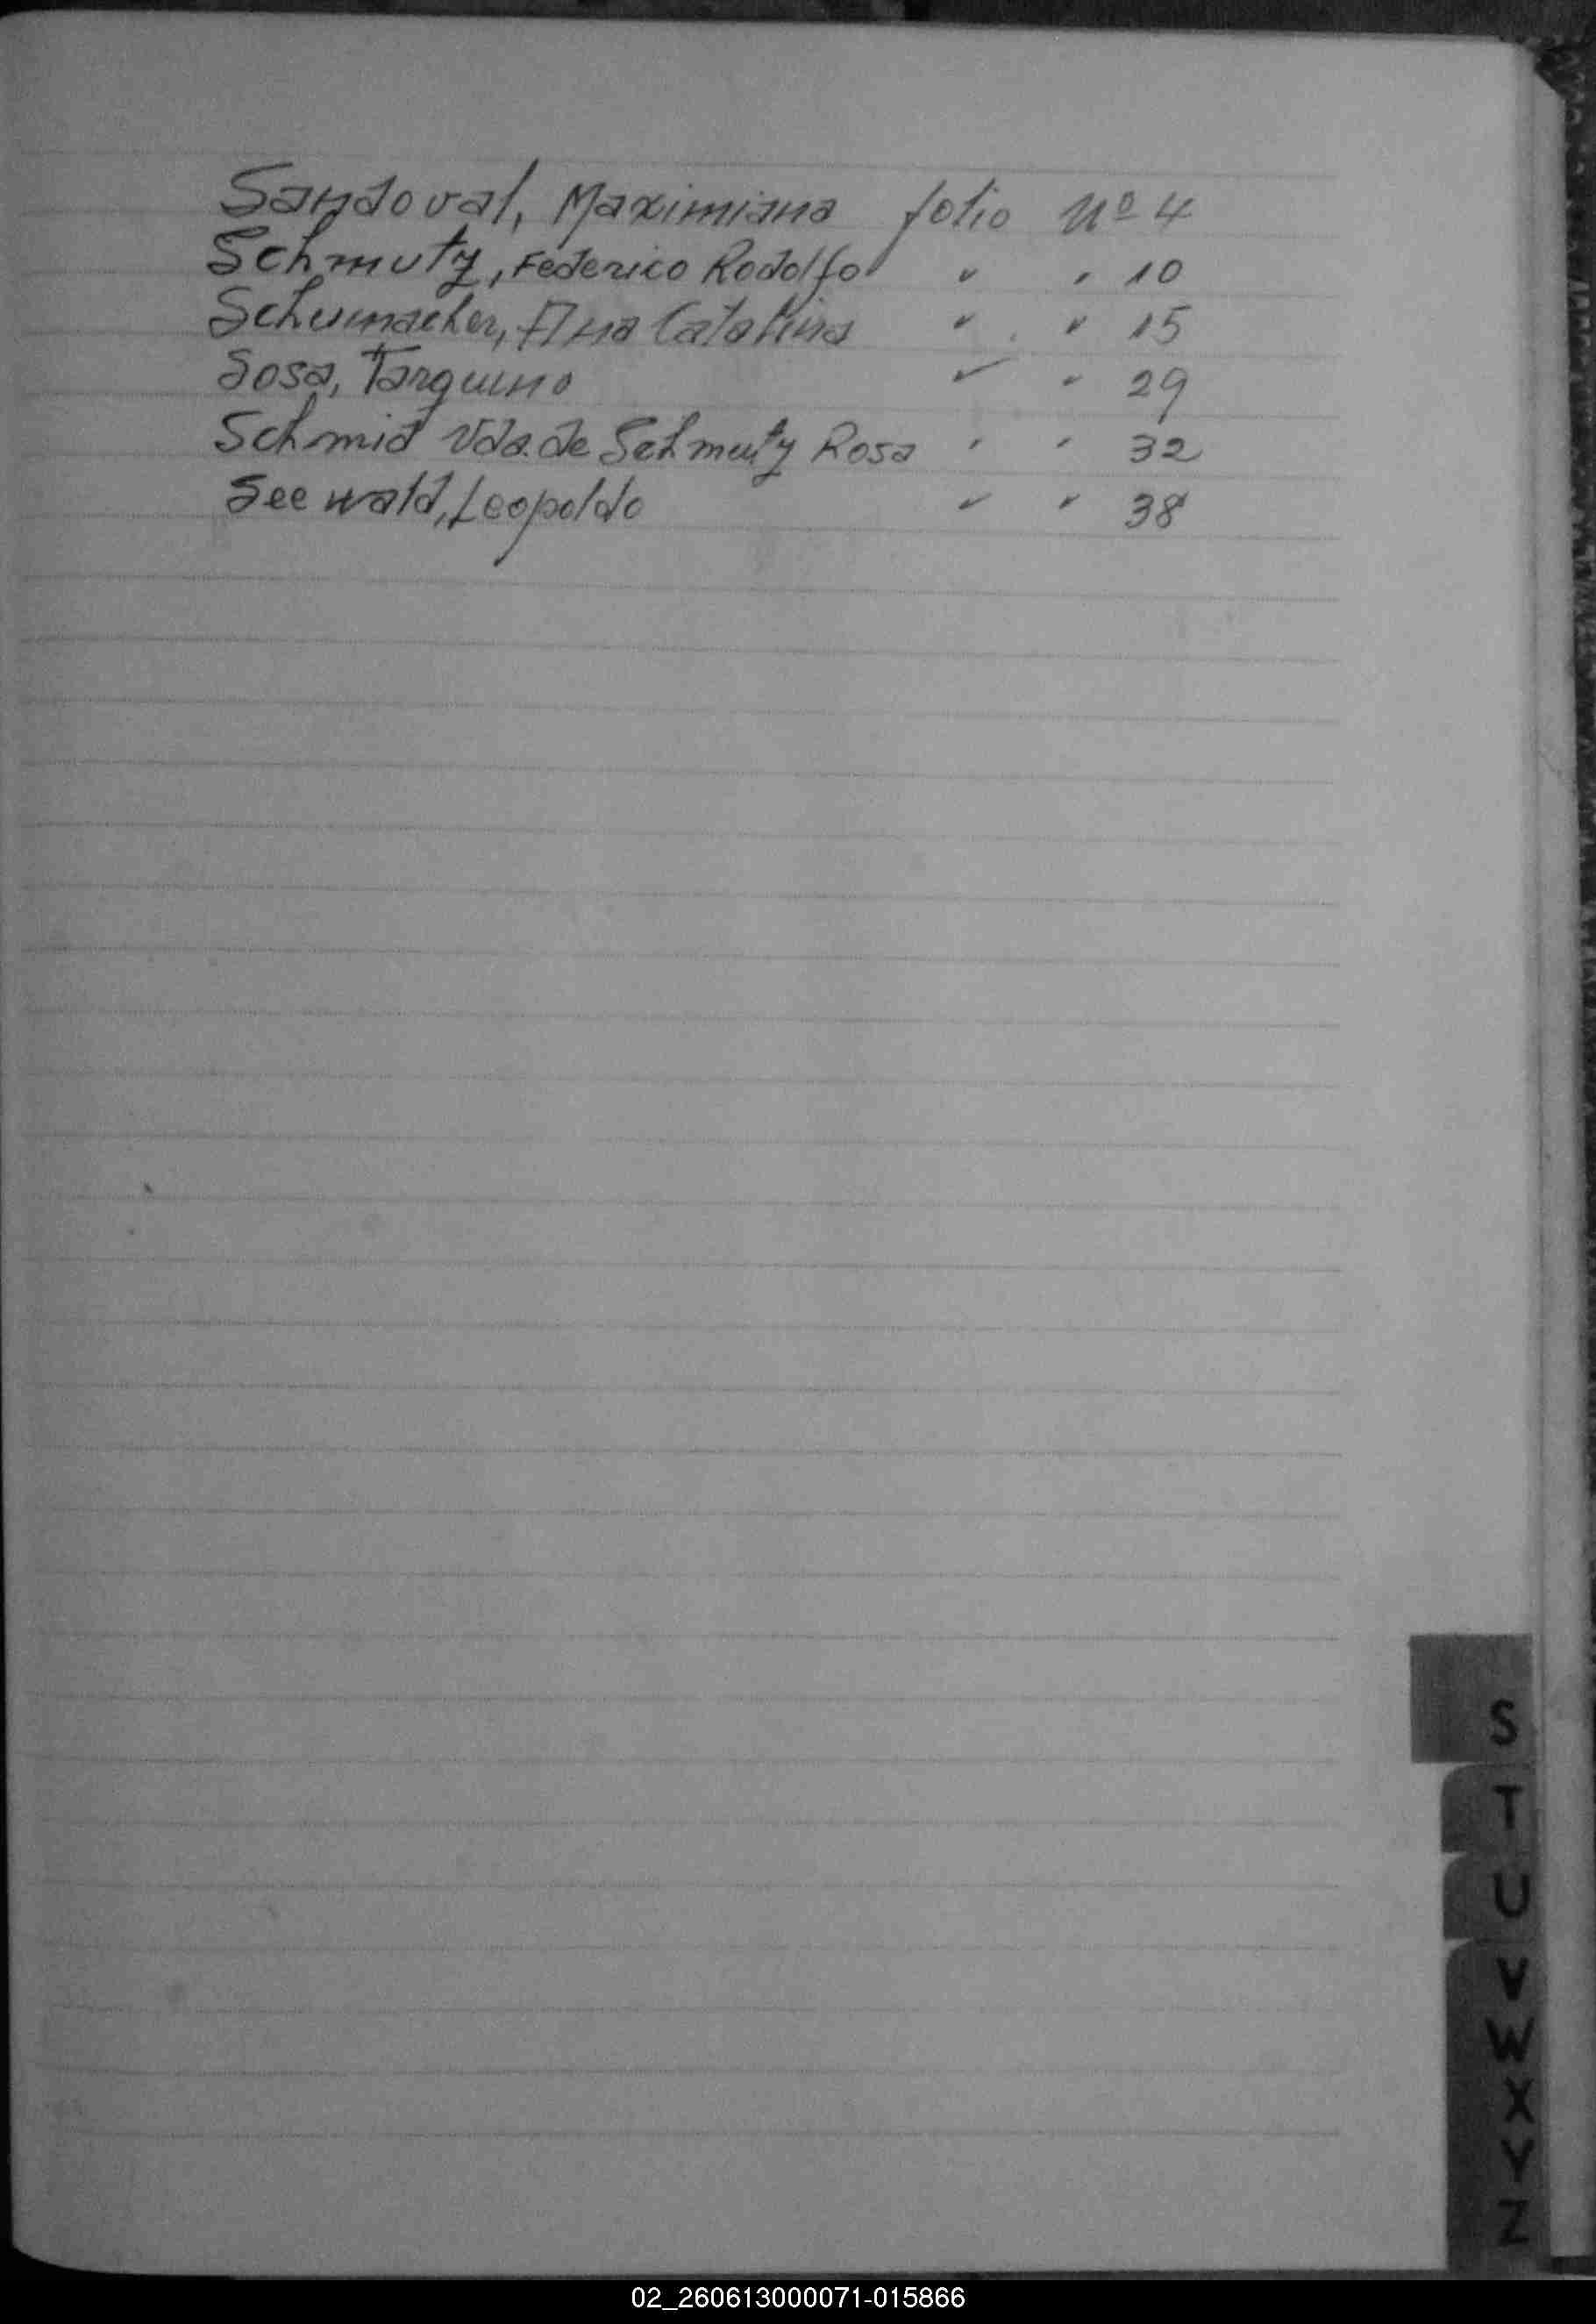 Sandoval, Maximiana folio Nº 4
Schmutz, Federico Rodolfo " " 10
Schumacher, Ana Catalina " " 15
Sosa, Tarquino " " 29
Schmid Vda. de Schmutz Rosa " " 32
Seewald, Leopoldo " " 38
S
T
U
V
W
X
Y
Z
02_260613000071-015866